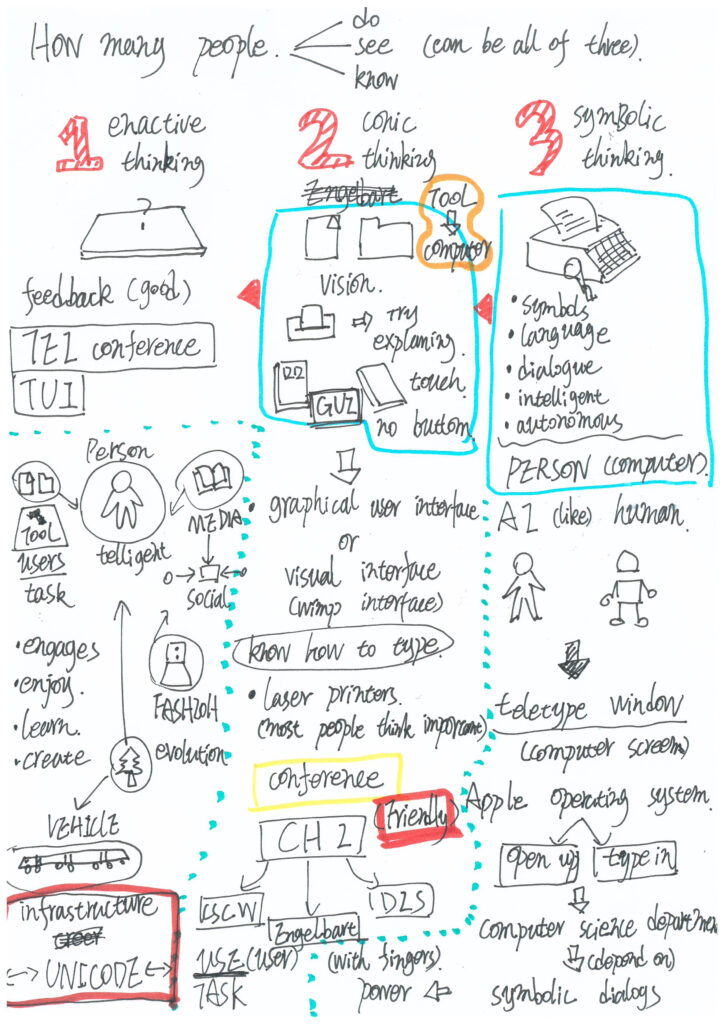 How many people.
do
see
know
(can be all of three).
1 enactive
thinking
?
feedback (good)
TEI conference
TUI
2 conic
thinking
Engelbart
TOOL
computer
vision.
Try
explaming.
touch.
GUI
no buttom.
graphical user interface
or
visual interface
(wimp interface)
know how to type.
laser printers.
(most people think important)
conference
(friendly)
CHI
CSCW
Engelbart
DIS
USE (user)
TASK
(with fingers).
3 symBolic
thinking.
symbols
language
dialogue
intelligent
autonomous
PERSON (computer).
AI (like) human.
teletype window
(computer screem)
Apple operating system.
open up
type in
computer science departmet
(depend on)
symbolic dialogs
power
Person
TOOL
users
task
telligent
MEDIA
social
engages
enjoy.
learn.
create
FASHIOH
evolution
VEHICLE
infrastructure
UNICODE